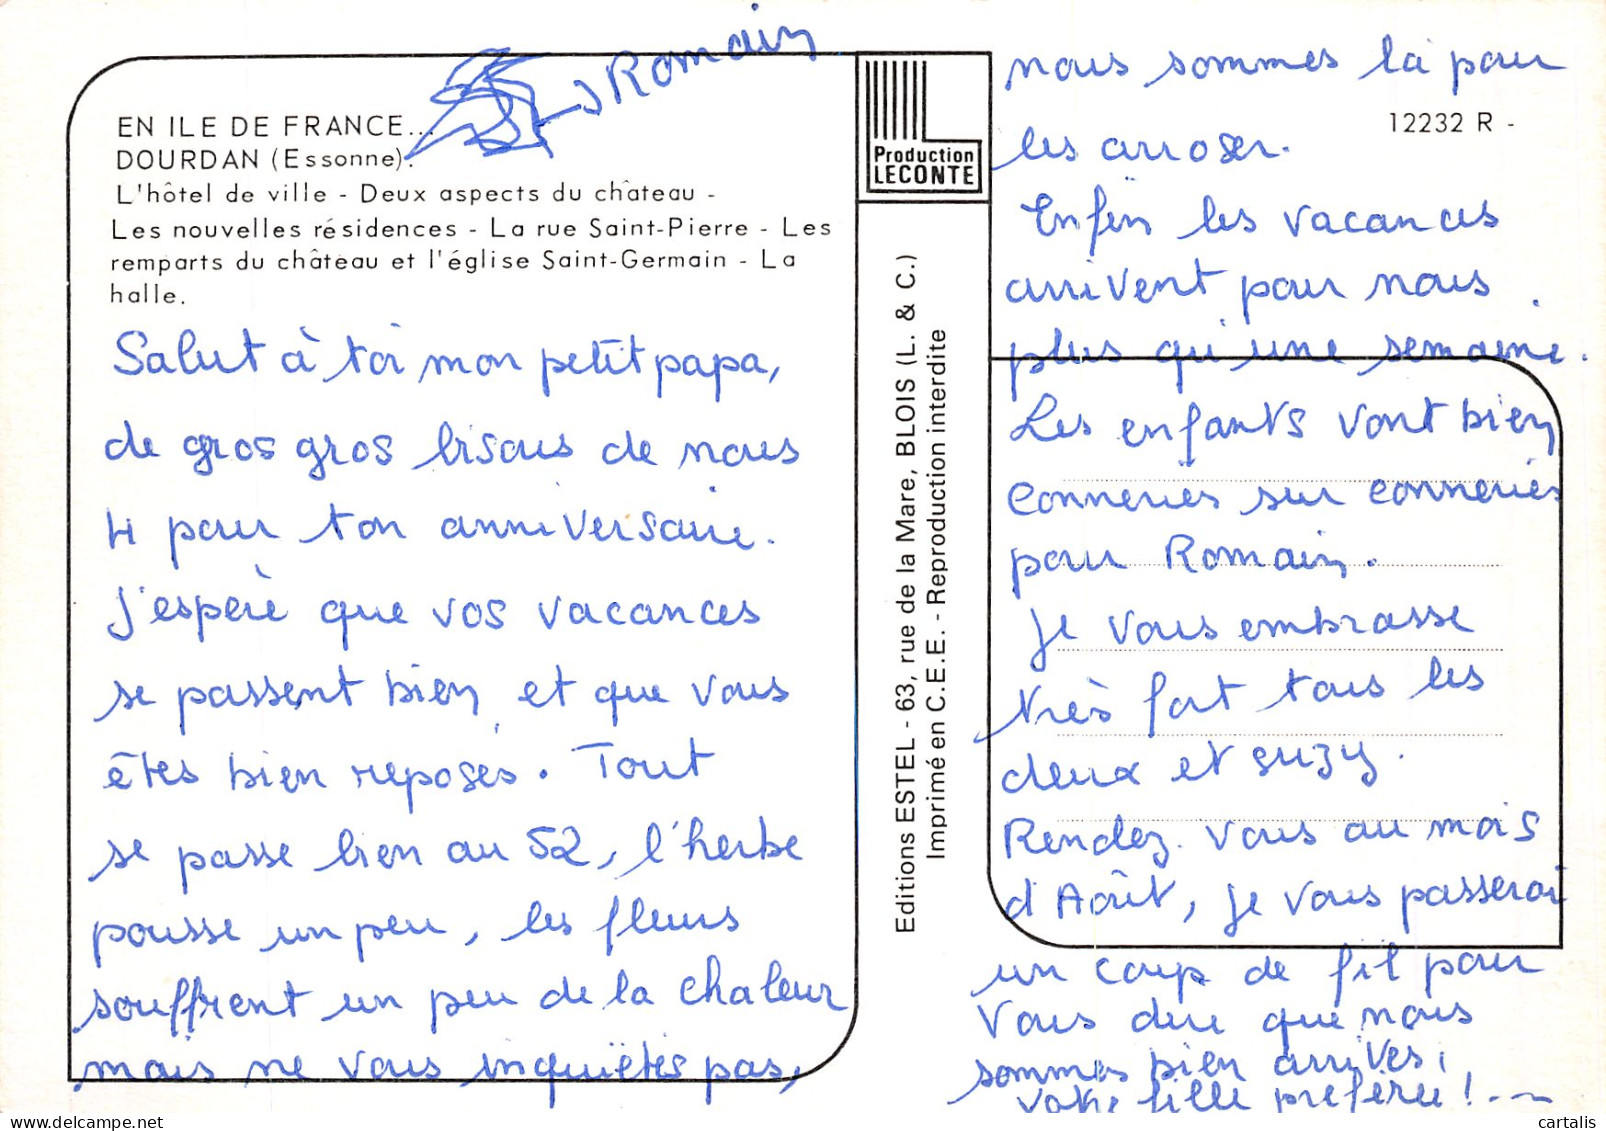 Romain
EN ILE DE FRANCE...
DOURDAN (Essonne).
L'hôtel de ville - Deux aspects du château -
Les nouvelles résidences - La rue Saint-Pierre - Les
remparts du château et l'église Saint-Germain - La
halle.
Salut à toi mon petit papa,
de gros gros bisous de nous
4 pour ton anniversaire.
J'espère que vos vacances
se passent bien et que vous
êtes bien reposés. Tout
se passe bien au 52, l'herbe
pousse un peu, les fleurs
souffrent un peu de la chaleur
mais ne vous inquiètés pas,
Production
LECONTE
Editions ESTEL - 63, rue de la Mare, BLOIS (L. & C.)
Imprimé en C.E.E. - Reproduction interdite
12232 R -
nous sommes là pour
les arroser.
Enfin les vacances
arrivent pour nous
plus qu'une semaine.
Les enfants vont bien
conneries sur conneries
pour Romain.
Je vous embrasse
très fort tous les
deux et Suzy.
Rendez-vous au mois
d'Août, je vous passerai
un coup de fil pour
vous dire que nous
sommes bien arrivés,
votre fille préférée !
cartalis
delcampe.net